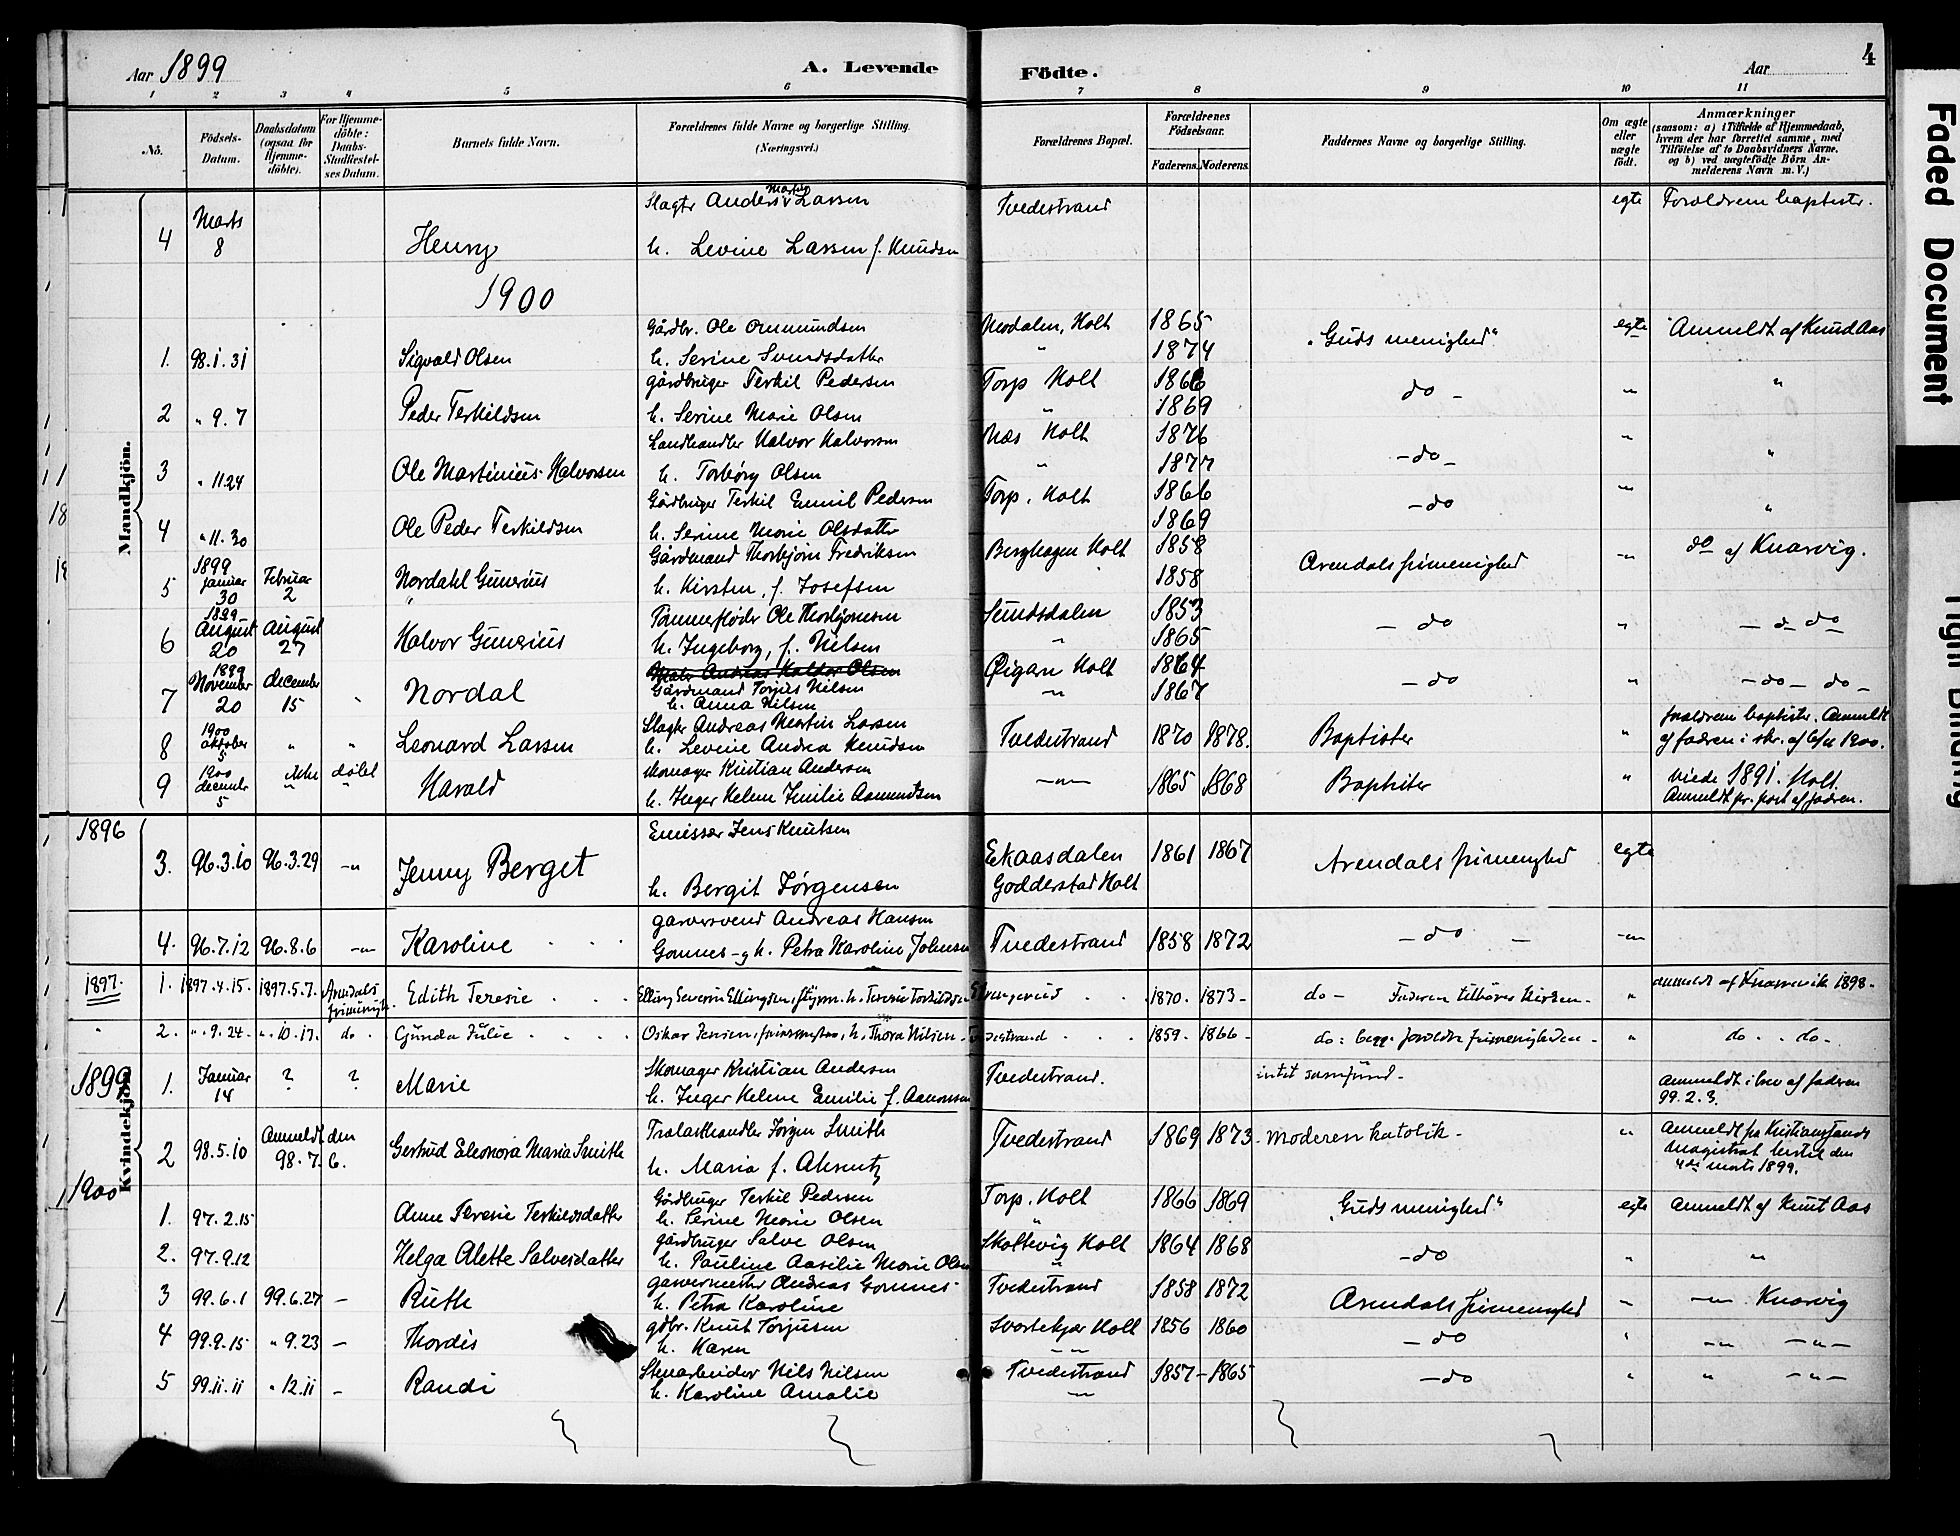 Aar 1899
A. Levende Födte.
Aar
4
1 2 3 4 5 6 7 8 9 10 11
No.
Födsels-Datum.
Daabsdatum (ogsaa for Hjemme-döbte).
For Hjemme-döbte: Daabs-Stadfæstel-ses Datum.
Barnets fulde Navn.
Forældrenes fulde Navne og borgerlige Stilling. (Næringsvei.)
Forældrenes Bopæl.
Forældrenes Födselsaar.
Faderens. Moderens.
Faddernes Navne og borgerlige Stilling.
Om ægte eller uægte födt.
Anmærkninger (saasom: a) i Tilfælde af Hjemmedaab, hvem der har forrettet samme, med Tilföielse af to Daabsvidners Navne, og b) ved uægtefödte Börn An-melderens Navn m. V.)
Mandkjön.
4 Marts 8 Henry Slagter Anders Martin Larsen h. Levine Larsen f. Knudsen Tvedestrand egte Forældrene baptister.
1900
1. 98.1.31 Sigvald Olsen Gårdbr. Ole Ommundsen h. Serine Svendsdatter Modalen, Holt " 1865 1874 "Guds menighed" egte Anmeldt af Knud Aas
2 " 9.7 Peder Terkildsen gårdbruger Terkil Pedersen h. Serine Marie Olsen Torp Holt " 1866 1869 do - " "
3 " 11.24 Ole Martinius Halvorsen Landhandler Halvor Halvorsen h. Torborg Olsen Næs Holt " 1876 1877 - do - " "
4 " 11.30 Ole Peder Terkildsen Gårdbruger Terkil Emil Pedersen h. Serine Marie Olsdatter Torp. Holt 1866 1869 - do " "
5 1899 Januar 30 Februar 2 Nordahl Gunerius Gårdmand Thorbjørn Fredriksen h. Kirsten, f. Josefsen Berghagen Holt 1858 1858 Arendals frimenighed - " do af Knarvig.
6 1899 August 20 August 27 Halvor Gunerius Tømmerfløder Ole Thorbjørnsen h. Ingeborg, f. Nilsen Sundsdalen " 1853 1865 - do " - do - do
7 1899 November 20 december 15 " Nordal Gårdmand Torjus Nilsen h. Anna Nilsen Holt " 1864 1867 - do " - do - do -
8 1900 oktober 5 " " Leonard Larsen Slagter Andreas Martin Larsen h. Levine Andrea Knudsen Tvedestrand 1870 1878. Baptister " forældrene baptister. Anmeldt af faderen i skr. af 1900.
9 1900 december 5 ikke døbt Harald skomager Kristian Andersen h. Inger Helene Emilie Aamundsen - " - 1865 1868 Baptister " viede 1891. Holt. Anmeldt pr. post af faderen.
Kvindekjön.
1896
3. 96.3.10 96.3.29 - " Jenny Berget Emissær Jens Knutsen h. Bergit Jørgensen Ekaasdalen Godderstad Holt 1861 1867 Arendals frimenighed egte
4. 96.7.12 96.8.6 - " Karoline garversvend Andreas Hansen Gomnes - og h. Petra Karoline Johnsen Tvedestrand 1858 1872 - do - - "
1897. 1. 1897.4.15. 1897.5.7. Arendals frimenigh. Edith Teresie Elling Severin Ellingsen, styrm. h. Teresie Torkildsen 1870. 1873 - do - Faderen tilhører kirken - " anmeldt af Knarrevik 1898 -
" 2. " . 9.24. " . 10.17. do . Gunda Julie Oskar Jensen, h. Thora Nilsen - Tvedestrand 1859. 1866 - do: begge forældre frimenigheden - " do . . do -
1899 1. Januar 14 ? ? Marie Skomager Kristian Andersen h. Inger Helene Emilie f. Aamonsen Tvedestrand. intet samfund - anmeldt i brev af faderen 99.2.3.
2 98.5.10 Anmeldt den 98.7.6. Gertrud Eleonora Maria Smith Trælasthandler Jørgen Smith h. Maria f. Ahrentz Tvedestrand 1869 1873 - Moderen katolik - " anmeldt fra Kristianssands Magistrat hertil den 4de marts 1899.
1900
1. 97.2.15 Anne Teresie Terkildsdatter Gårdbruger Terkil Pedersen h. Serine Marie Olsen Torp. Holt " 1866 1869 "Guds menighed" egte anmeldt af Knut Aas
2. 97.9.12 Helga Alette Salvesdatter gårdbruger Salve Olsen h. Pauline Aasilie Marie Olsen Skottevig Holt " 1864 1868 - do " "
3 99.6.1 99.6.27 - Ruth garvermester Andreas Gomnes - h. Petra Karoline Tvedestrand 1858 1872 Arendals frimenighed " - " Knarvig
4 99.9.15 " 9.23 - Thordis gdbr. Knut Torjusen h. Karen Svartekjær Holt " 1856 1860 - do " - " - " -
5 99.11.11 " 12.11 - Randi Stenarbeider Nils Nilsen h. Karoline Amalie Tvedestrand " 1857 - 1865 - do " " - " -
Faded Document
Tight Binding